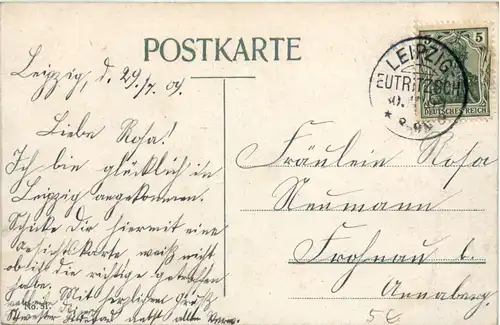 POSTKARTE
Leipzig, d. 29./7.09.
Liebe Rosa!
Ich bin glücklich in
Leipzig angekommen.
Schicke Dir hiermit eine
Ansichtskarte, weiß nicht
ob ich die richtige getroffen
habe. Mit herzlichem Gruß
Schwester
No. 51.
5
LEIPZIG
EUTRITZSCH
DEUTSCHES REICH
Fräulein Rosa
Neumann
Frohnau b.
Annaberg.